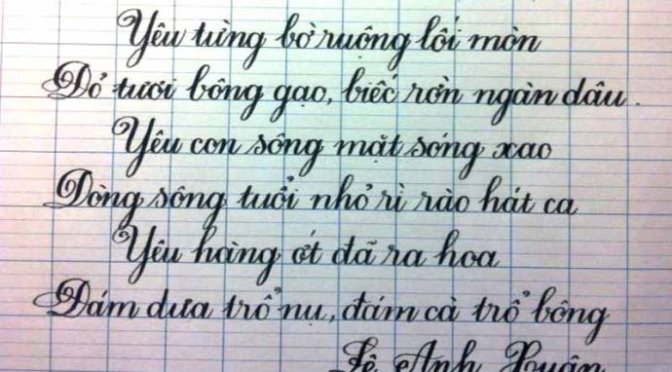 Yêu từng bờ ruộng lối mòn
Đỏ tươi bông gạo, biếc rờn ngàn dâu.
Yêu con sông mặt sóng xao
Dòng sông tuổi nhỏ rì rào hát ca
Yêu hàng ớt đã ra hoa
Đám dưa trổ nụ, đám cà trổ bông
Lê Anh Xuân